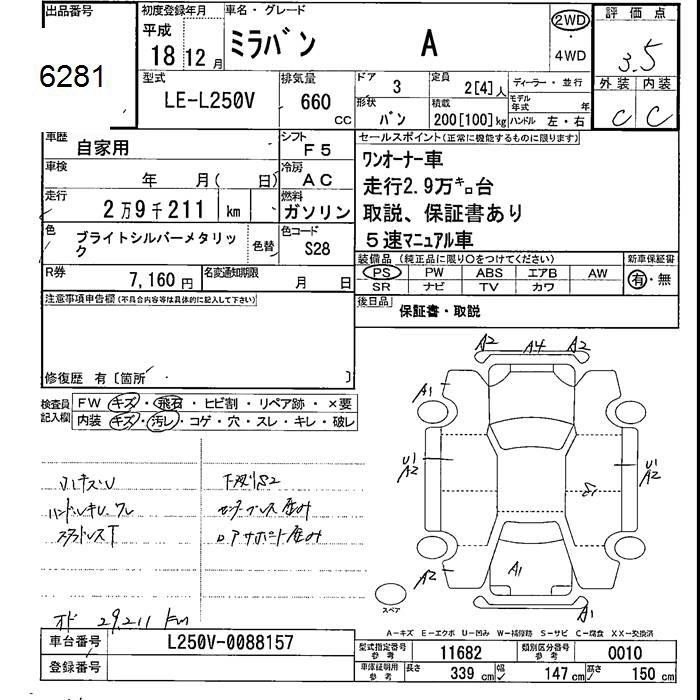 出品番号
6281
初度登録年月
平成
18 12月
車名・グレード
ミラバン A
2WD
・
4WD
評価点
3.5
外装 内装
C C
型式
LE-L250V
排気量
660
CC
ドア 3
定員 2[4]人
ディーラー・並行
形状 バン
積載 200[100]kg
モデル年式 年
ハンドル 左・右
車歴 自家用
シフト F5
車検 年 月( 日)
冷房 AC
走行 2万9千211 km
燃料 ガソリン
色 ブライトシルバーメタリック
色替
色コード S28
R券 7,160円
名変通知期限 月 日
セールスポイント(正常に機能するものに限ります)
ワンオーナー車
走行2.9万㌔台
取説、保証書あり
5速マニュアル車
装備品(純正品に限り○をつけてください)
新車保証書
PS PW ABS エアB AW
SR ナビ TV カワ
有・無
後日品 保証書・取説
注意事項申告欄(不具合内容等は具体的に記入して下さい)
修復歴 有〔箇所 〕
検査員記入欄
FW キズ・飛石・ヒビ割・リペア跡・×要
内装 キズ・汚レ・コゲ・穴・スレ・キレ・破レ
下廻りS2
A2 A4 A2
A1
U1 A2
U1 A2
S1
A2
A1
A1
スペア
オド 29211 km
A-キズ E-エクボ U-凹み W-補修跡 S-サビ C-腐食 XX-交換済
車台番号 L250V-0088157
登録番号
型式指定番号 参考 11682
類別区分番号 参考 0010
車庫証明用 参考 長さ 339cm 幅 147cm 高さ 150cm